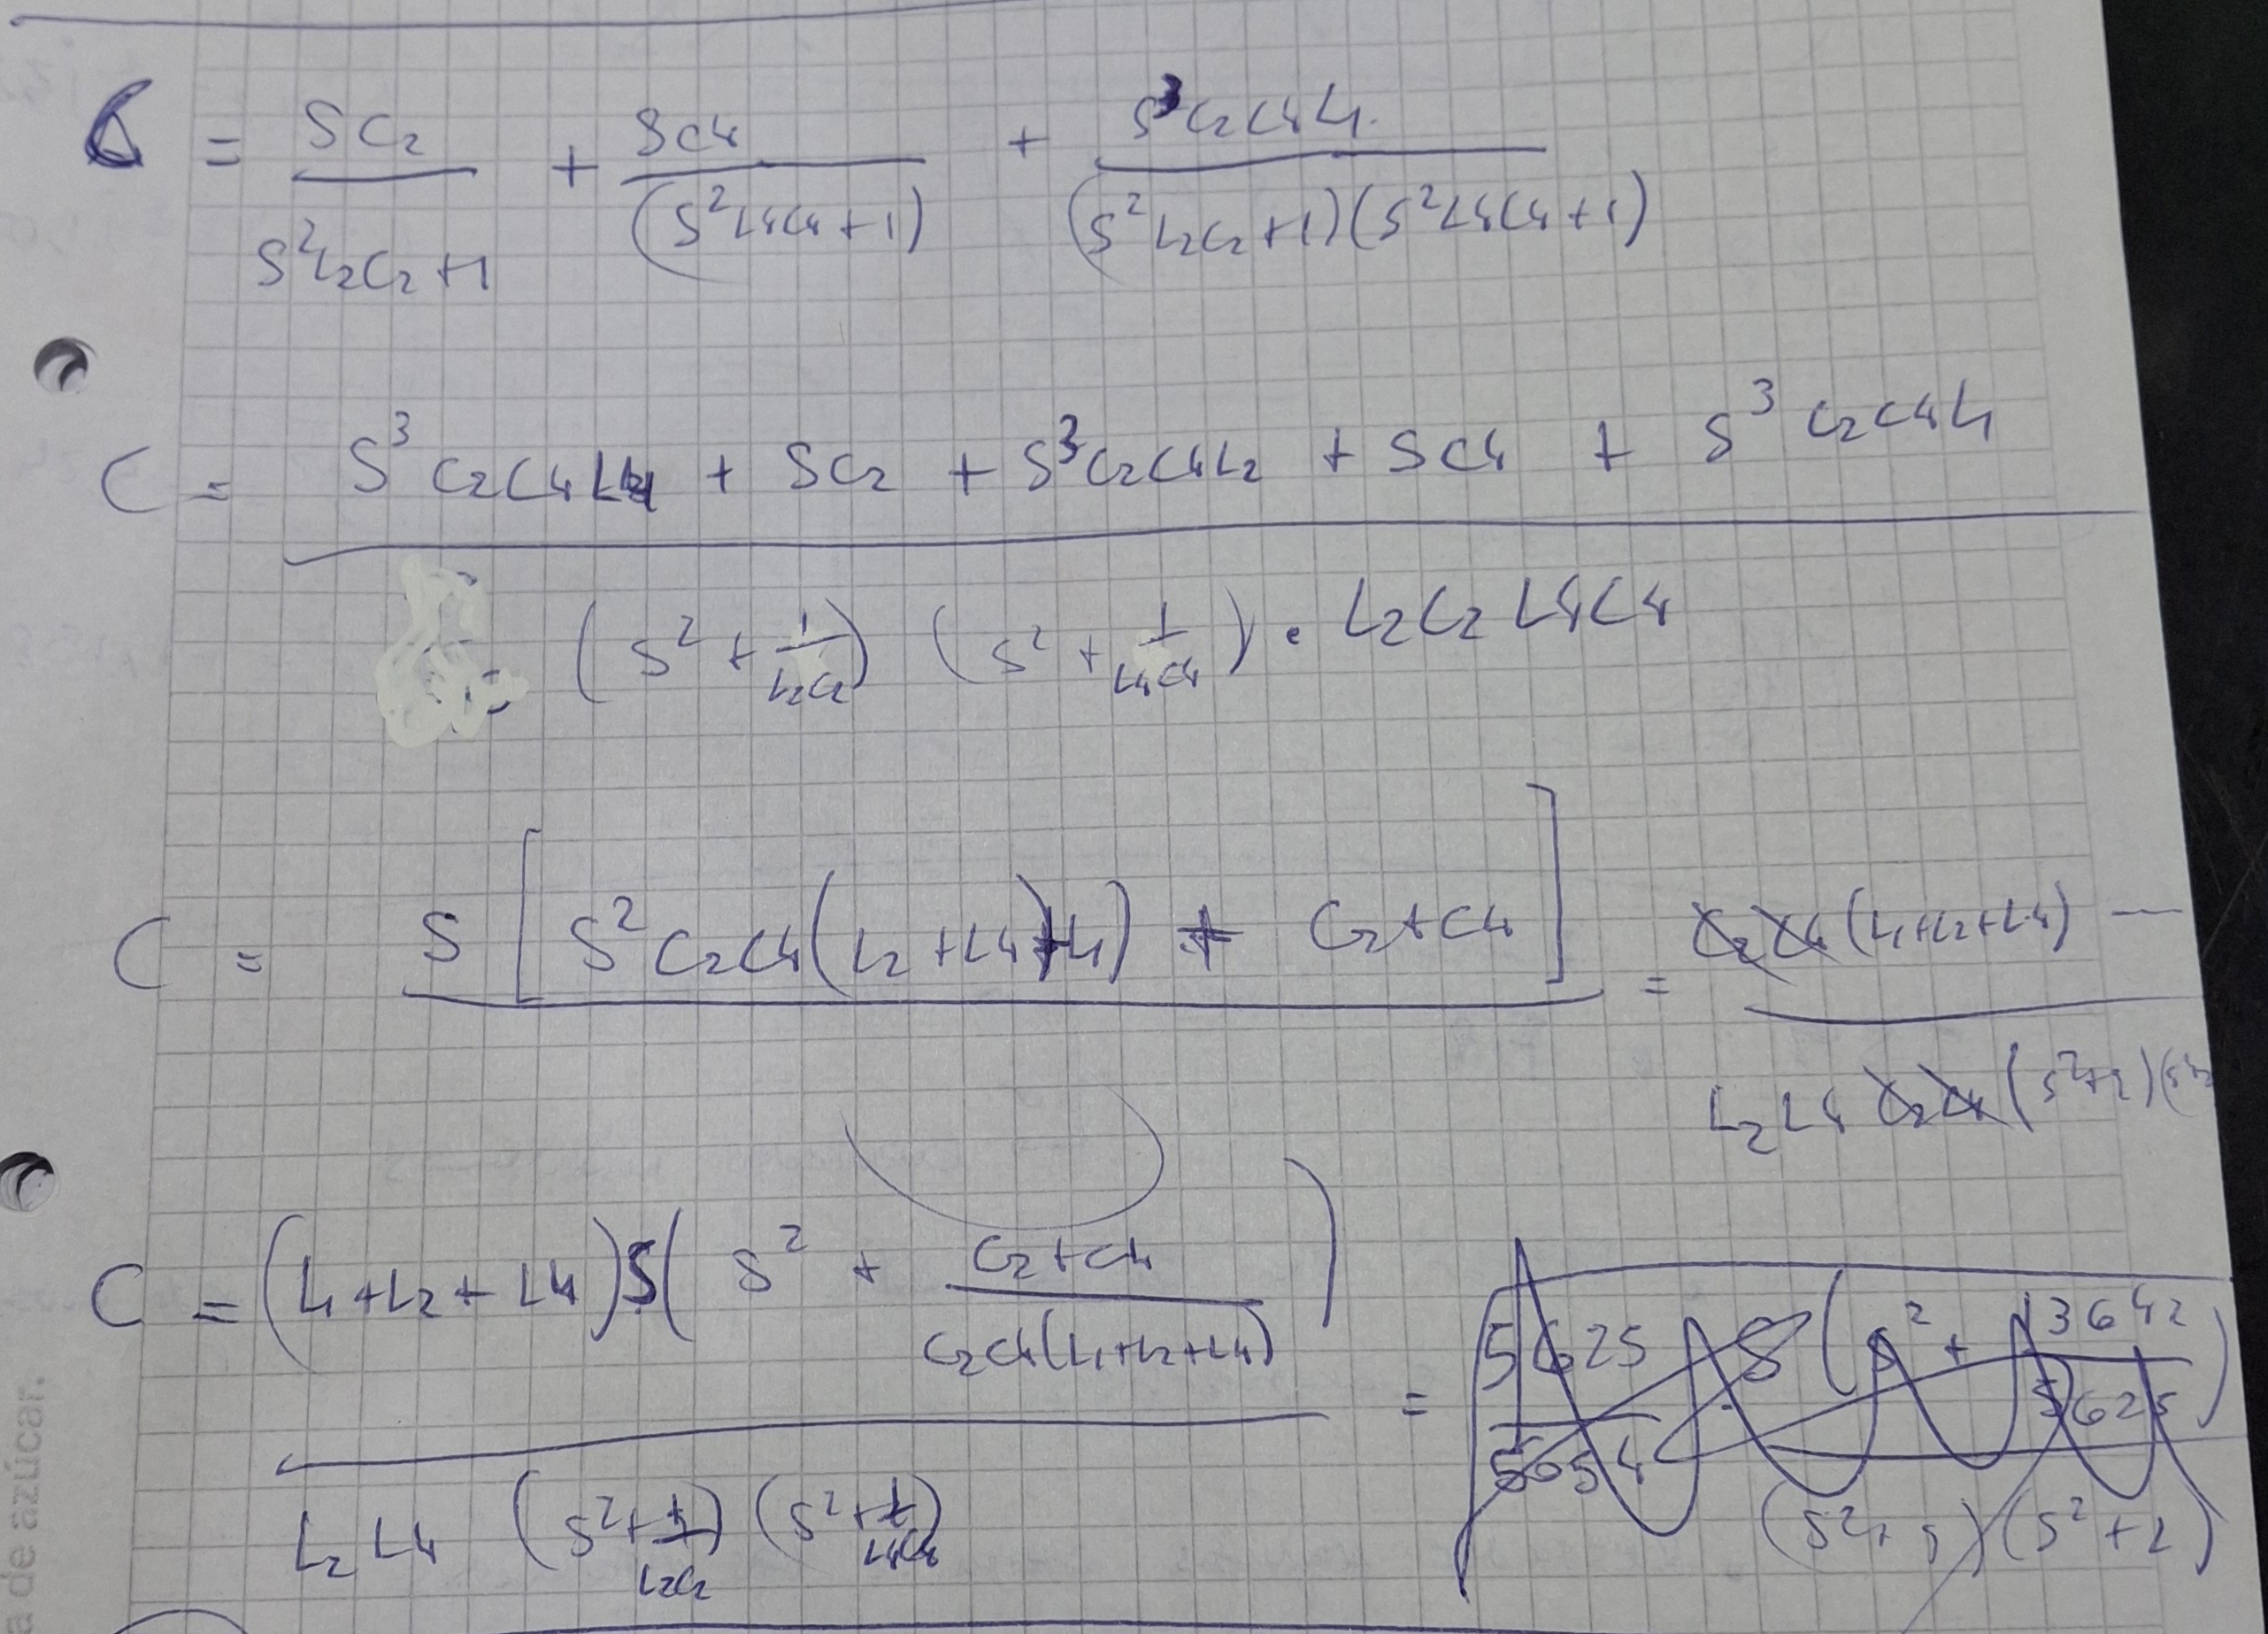 C = SC2 / (S²L2C2+1) + SC4 / (S²L4C4+1) + S³C2C4L1 / (S²L2C2+1)(S²L4C4+1)
C = S³C2C4L4 + SC2 + S³C2C4L2 + SC4 + S³C2C4L1
(S² + 1/L2C2) (S² + 1/L4C4) · L2C2L4C4
C = S [S²C2C4(L2+L4+L1) + C2+C4] = C2C4(L1+L2+L4) —
L2L4C2C4(S²+2)
C = (L1+L2+L4)S(S² + C2+C4 / C2C4(L1+L2+L4)) = 5625 / 5054 · S (S² + 13642 / 5625)
L2L4 (S²+1/L2C2) (S²+1/L4C4) (S²+ ) (S²+2)
a de azúcar.